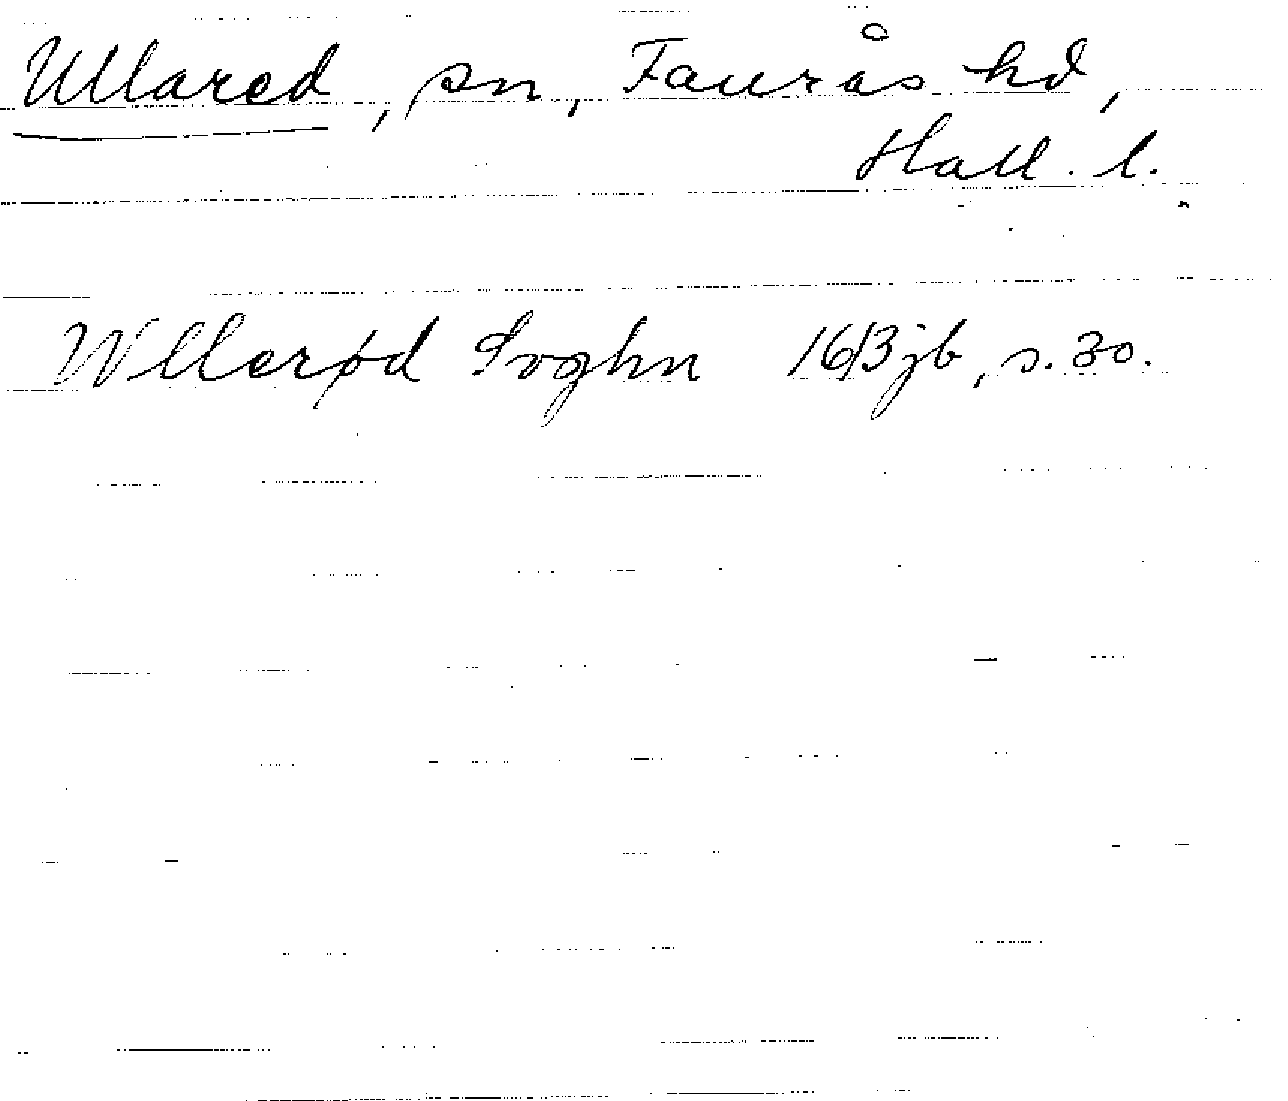 Ullared, sn, Faurås hd,
Hall. l.
Wllerød Sroghn 1613 jb, s. 30.